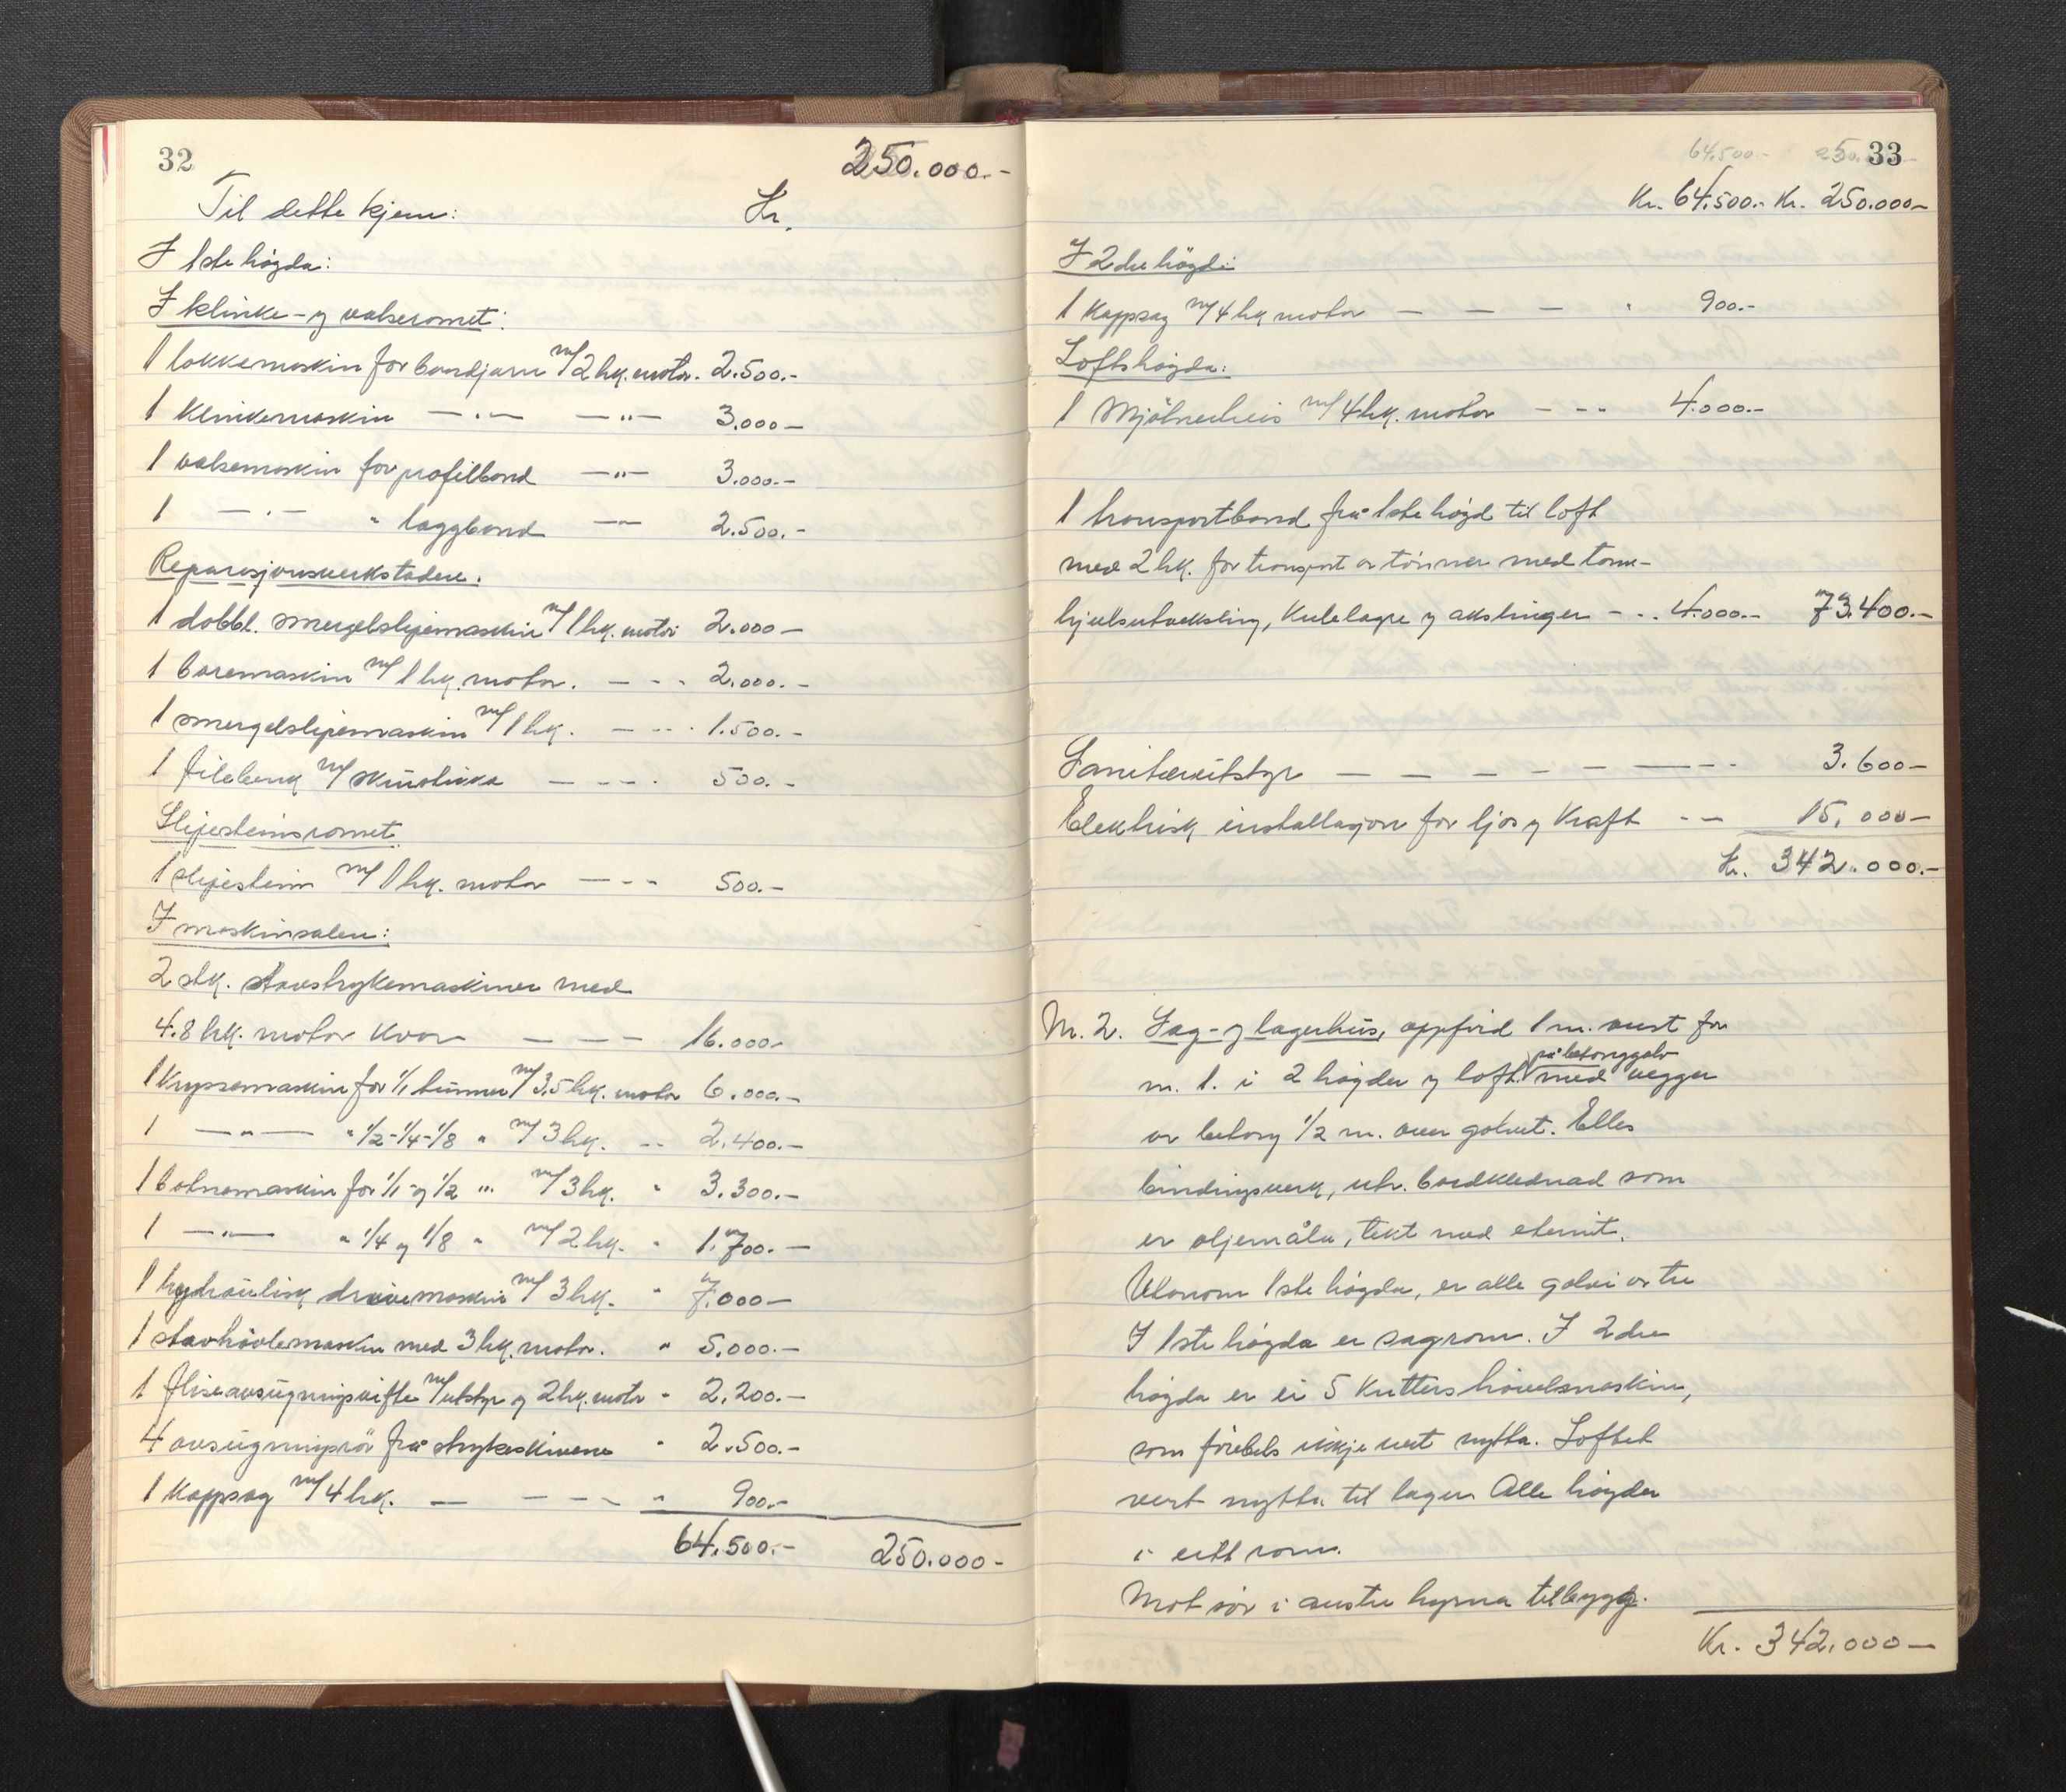 32
250.000.-
Til dette kjem: Kr.
I 1ste høgda:
I klinke- og valseromet:
1 lokkemaskin for bandjarn m/2 hk. motor. 2.500.-
1 Klinkemaskin —"— —"— 3.000—
1 valsemaskin for profilband —"— 3.000.-
1 —"— " laggband —"— 2.500.-
Reparasjonsverkstaden.
1 dobbl. smergelslipemaskin m/1 hk. motor 2.000—
1 boremaskin m/1 hk. motor. — - - 2.000.-
1 smergelslipemaskin m/1 hk. — - - - 1.500.-
1 filebenk m/skruestikka — - - - 500.-
Slipesteinsromet
1 slipestein m/1 hk. motor — - - 500.-
I maskinsalen:
2 stk. stavstrykemaskiner med
4.8 hk. motor kvar — — — 16.000-
1 Krysemaskin for 1/1 tunner m/3,5 hk. motor 6.000.-
1 —"— " 1/2-1/4-1/8 " m/3 hk. -- 2.400.-
1 botnemaskin for 1/1 og 1/2 " m/3 hk. " 3.300.-
1 —"— " 1/4 og 1/8 " m/2 hk. " 1.700.—
1 hydraulisk drivemaskin m/3 hk. " 7.000—
1 stavhøvlemaskin med 3 hk. motor. " 5.000.-
1 fliseavsugningsvifte m/utstyr og 2 hk. motor " 2.200.-
4 avsugningsrør frå strykeskivene " 2.500.-
1 Kappsag m/4 hk. — — - - - " 900.-
64.500.- 250.000-
64.500- 250. 33
Kr. 64.500.- Kr. 250.000—
I 2dre høgd:
1 Kappsag m/4 hk motor — — — " 900.-
Loftshøgda:
1 Mjølnerheis m/4 hk. motor - - - 4.000.-
1 transportband frå 1ste høgd til loft
med 2 hk. for transport av tønner med tann-
hjulsutveksling, Kulelagre og akslinger - - . 4.000.- 73.400.-
Sanitærutstyr — — — — — — - - - 3.600-
Elektrisk installasjon for ljos og Kraft - - 15.000-
Kr. 342.000.-
M. 2. Sag- og lagerhus, oppførd 1 m. aust for
på betonggolv
m. 1. i 2 høgder og loft. med vegger
av betong 1/2 m. over golvet. Elles
bindingsverk, utv. bordklednad som
er oljemåla, tekt med eternit.
Utanom 1ste høgda, er alle golvi av tre
I 1ste høgda er sagrom. I 2dre
høgda er ei 5 Kutters høvelmaskin,
som førebels ikkje vert nytta. Loftet
vert nytta til lager. Alle høgder
i eitt rom.
Mot sør i austre hyrna tilbygg.
Kr. 342.000—